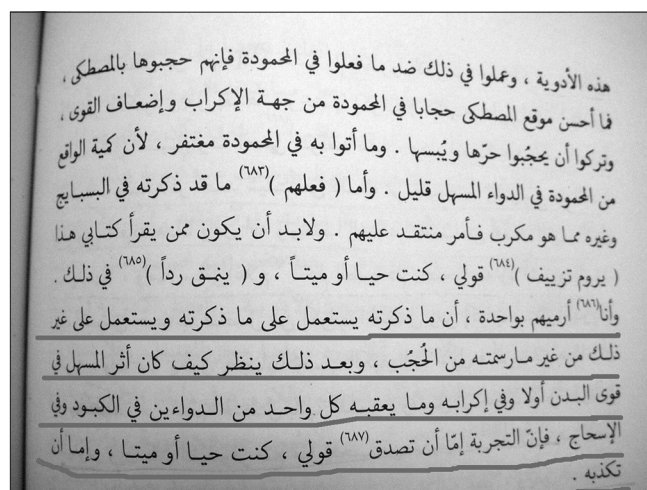 هذه الأدوية ، وعملوا في ذلك ضد ما فعلوا في المحمودة فإنهم حجبوها بالمصطكى ،
فما أحسن موقع المصطكى حجابا في المحمودة من جهـة الإكراب وإضعـاف القوى ،
وتركوا أن يحجُبوا حرّها ويُبسها . وما أتوا به في المحمودة مغتفر ، لأن كمية الواقع
من المحمودة في الدواء المسهل قليل . وأما ( فعلهم )(٦٨٣) ما قد ذكرته في البسبايج
وغيره ممـا هو مكرب فـأمر منتقـد عليهم . ولابـد أن يكون ممن يقرأ كتـابي هـذا
( يروم تزييف )(٦٨٤) قولي ، كنت حيـا أو ميتـاً ، و ( ينمـق رداً )(٦٨٥) في ذلـك .
وأنا(٦٨٦) أرميهم بواحدة ، أن ما ذكرته يستعمل على ما ذكرته ويستعمل على غير
ذلـك من غير مـا رسمتـه من الحُجُب ، وبعـد ذلـك ينظر كيف كان أثر المسهل في
قوى البـدن أولا وفي إكرابـه ومـا يعقبـه كل واحـد من الـدواءين في الكبـود وفي
الإسحاج ، فإنّ التجربة إمّا أن تصدق(٦٨٧) قولي ، كنت حيـا أو ميتـا ، وإمـا أن
تكذبه .